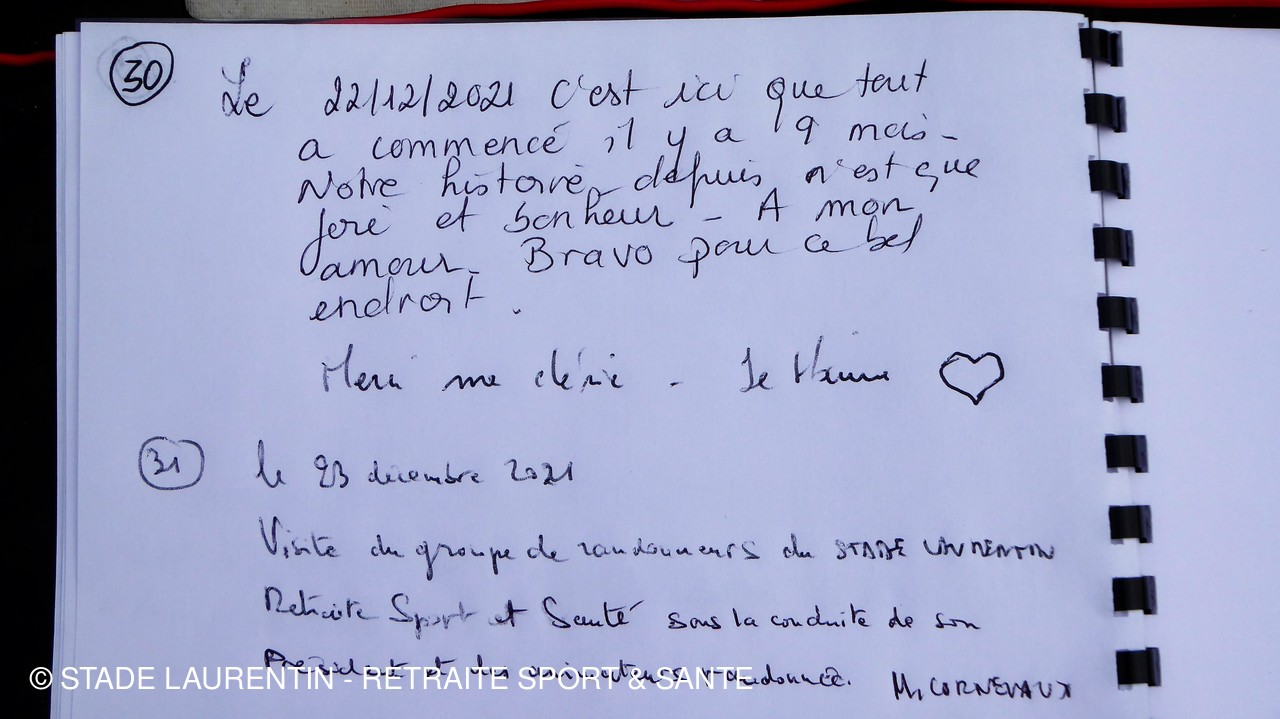 30
Le 22/12/2021 C'est ici que tout
a commencé il y a 9 mois -
Notre histoire, depuis, n'est que
joie et bonheur - A mon
amour. Bravo pour ce bel
endroit.
Merci ma - Je
31
le 23 décembre 2021
Visite du groupe de randonneurs du STADE LAURENTIN
Retraite Sport et Santé sous la conduite de son
Président et des animateurs randonnée. M. CORNEVAUX
© STADE LAURENTIN - RETRAITE SPORT & SANTE